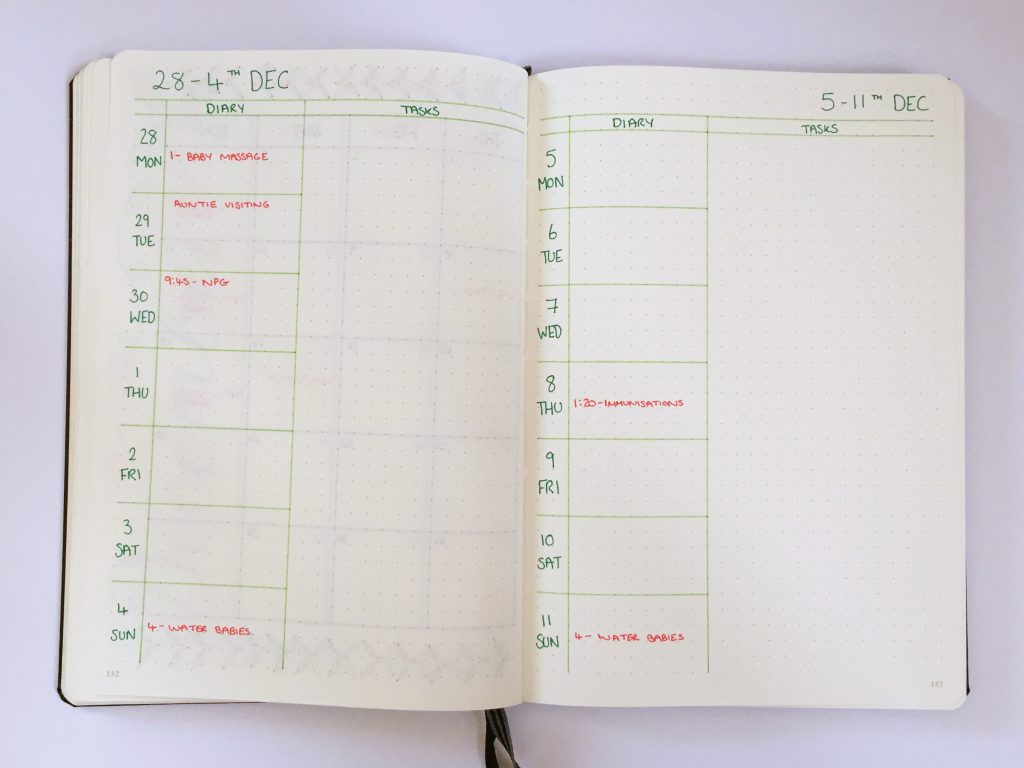 28-4TH DEC
DIARY TASKS
28
MON 1- BABY MASSAGE
AUNTIE VISITING
29
TUE
9:45- NPG
30
WED
1
THU
2
FRI
3
SAT
4
SUN 4- WATER BABIES
152
5-11TH DEC
DIARY TASKS
5
MON
6
TUE
7
WED
8
THU 1:20-IMMUNISATIONS
9
FRI
10
SAT
11
SUN 4- WATER BABIES
153